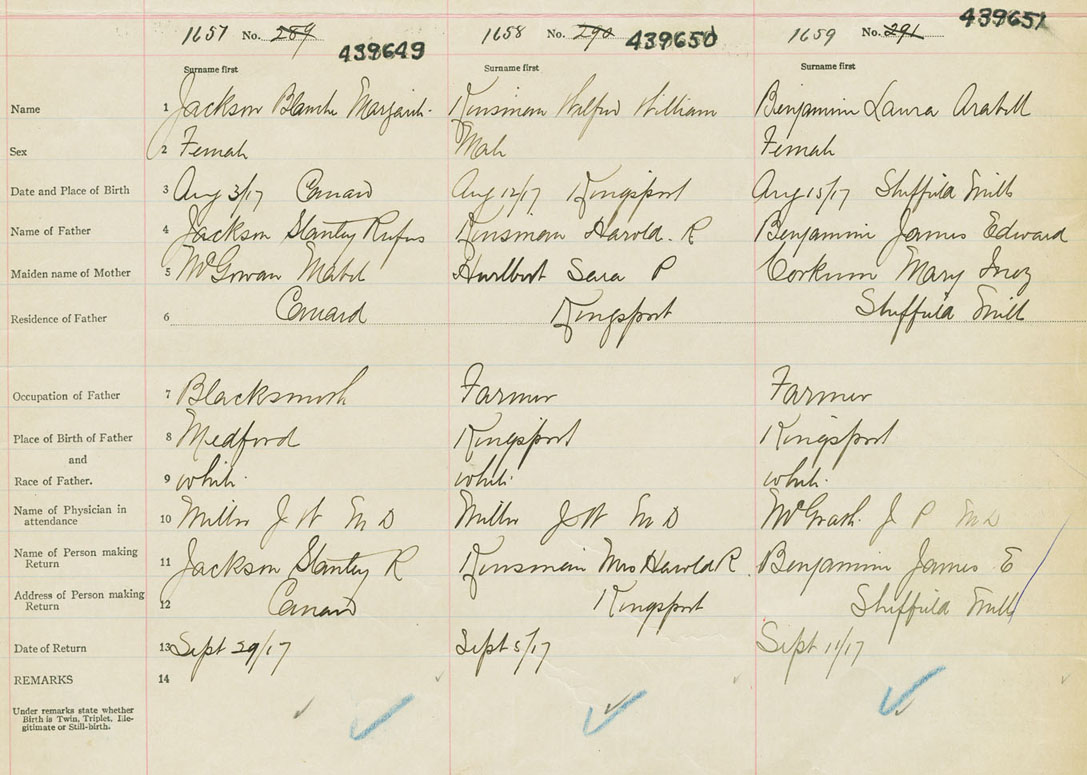 1657 No. 289 439649 1658 No. 290 439650 1659 No. 291 439651
Surname first Surname first Surname first
Name 1 Jackson Blanche Margaret Kinsman Wilfred William Benjamin Laura Arabell
Sex 2 Female Male Female
Date and Place of Birth 3 Aug 3/17 Canard Aug 12/17 Kingsport Aug 15/17 Sheffield Mills
Name of Father 4 Jackson Stanley Rufus Kinsman Harold. R Benjamin James Edward
Maiden name of Mother 5 McGowan Mabel Hurlburt Sara P Corkum Mary Inez
Residence of Father 6 Canard Kingsport Sheffield Mills
Occupation of Father 7 Blacksmith Farmer Farmer
Place of Birth of Father 8 Medford Kingsport Kingsport
and
Race of Father. 9 white white white
Name of Physician in
attendance 10 Miller J W M D Miller J W M D McGrath J P M D
Name of Person making
Return 11 Jackson Stanley R Kinsman Mrs Harold R. Benjamin James E
Address of Person making
Return 12 Canard Kingsport Sheffield Mills
Date of Return 13 Sept 29/17 Sept 5/17 Sept 11/17
REMARKS 14
Under remarks state whether
Birth is Twin, Triplet, Ille-
gitimate or Still-birth.